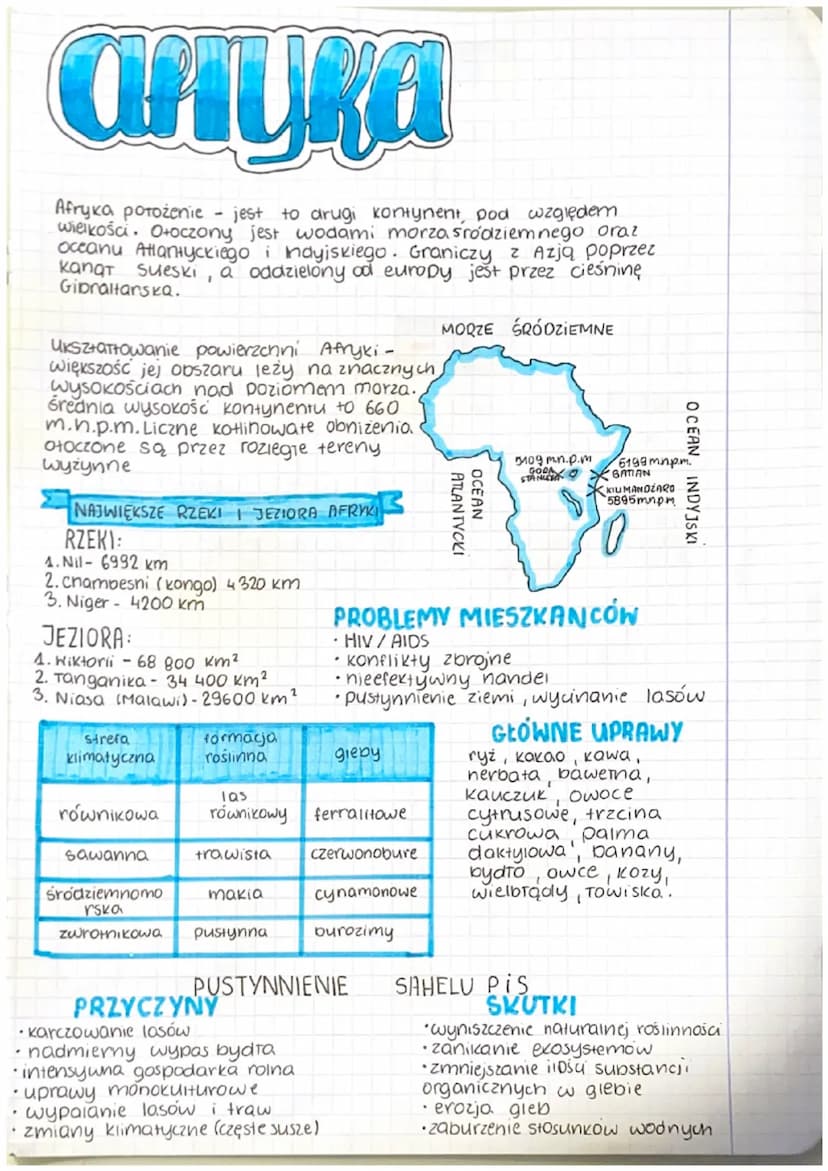 afryka
Afryka położenie - jest to drugi kontynent pod względem
wielkości. Otoczony jest wodami morza śródziemnego oraz
oceanu Atlantyckiego i Indyjskiego. Graniczy z Azją poprzez
kanał Sueski, a oddzielony od europy jest przez cieśninę
Gibraltarską.
Ukształtowanie powierzchni Afryki -
większość jej obszaru leży na znacznych
wysokościach nad poziomem morza.
Średnia wysokość kontynentu to 660
m.n.p.m. Liczne kotlinowate obniżenia
otoczone są przez rozległe tereny
wyżynne
MORZE ŚRÓDZIEMNE
5109 m.n.p.m
GÓRA
STANLEYA
5199 m.n.p.m.
BATIAN
KILIMANDŻARO
5895 m.n.p.m
OCEAN ATLANTYCKI
OCEAN INDYJSKI
NAJWIĘKSZE RZEKI I JEZIORA AFRYKI
RZEKI:
1. Nil - 6992 km
2. Chambesni (kongo) 4320 km
3. Niger - 4200 km
JEZIORA:
1. Wiktorii - 68 800 km²
2. Tanganika - 34 400 km²
3. Niasa (Malawi) - 29600 km²
PROBLEMY MIESZKAŃCÓW
• HIV / AIDS
• konflikty zbrojne
• nieefektywny handel
• pustynnienie ziemi, wycinanie lasów
strefa klimatyczna | formacja roślinna | gleby
równikowa | las równikowy | ferralitowe
sawanna | trawista | czerwonobure
śródziemnomorska | makia | cynamonowe
zwrotnikowa | pustynna | burozimy
GŁÓWNE UPRAWY
ryż, kakao, kawa,
herbata, bawełna,
kauczuk, owoce
cytrusowe, trzcina
cukrowa, palma
daktylowa, banany,
bydło, owce, kozy,
wielbłądy, łowiska.
PUSTYNNIENIE SAHELU PiS
PRZYCZYNY
• karczowanie lasów
• nadmierny wypas bydła
• intensywna gospodarka rolna
• uprawy monokulturowe
• wypalanie lasów i traw
• zmiany klimatyczne (częste susze)
SKUTKI
• wyniszczenie naturalnej roślinności
• zanikanie ekosystemów
• zmniejszanie ilości substancji
organicznych w glebie
• erozja gleb
• zaburzenie stosunków wodnych